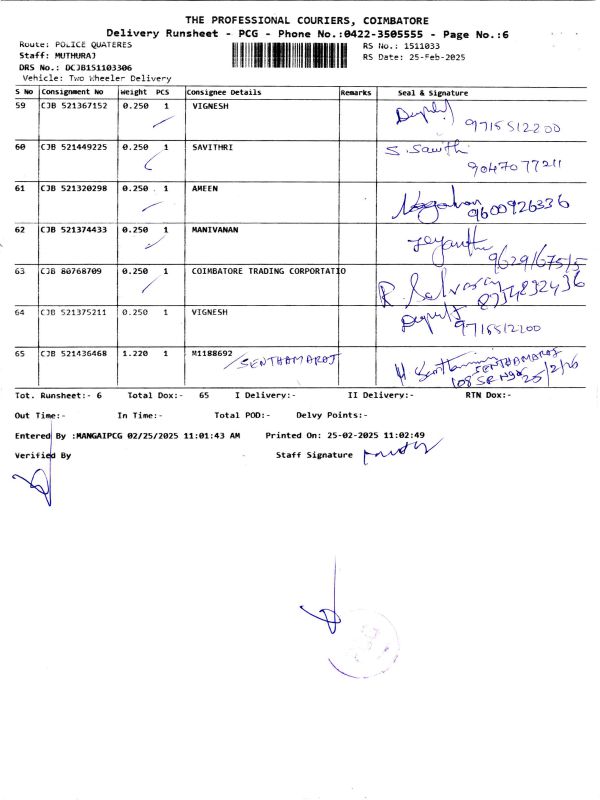 THE PROFESSIONAL COURIERS, COIMBATORE
Delivery Runsheet - PCG - Phone No.:0422-3505555 - Page No.:6
Route: POLICE QUATERES RS No.: 1511033
Staff: MUTHURAJ RS Date: 25-Feb-2025
DRS No.: DCJB1S1103306
Vehicle: Two Wheeler Delivery
S No Consignment No Weight PCS Consignee Details Remarks Seal & Signature
59 CJB 521367152 0.250 1 VIGNESH
9715512200
60 CJB 521449225 0.250 1 SAVITHRI S. Savithi
9047077211
61 CJB 521320298 0.250 1 AMEEN
9600926336
62 CJB 521374433 0.250 1 MANIVANAN
9629167515
63 CJB 80768709 0.250 1 COIMBATORE TRADING CORPORTATIO R. Selvaraj
8734832436
64 CJB 521375211 0.250 1 VIGNESH
9715512200
65 CJB 521436468 1.220 1 M1188692 SENTHAMARAJ
SENTHAMARAJ
25/2/26
Tot. Runsheet:- 6 Total Dox:- 65 I Delivery:- II Delivery:- RTN Dox:-
Out Time:- In Time:- Total POD:- Delvy Points:-
Entered By :MANGAIPCG 02/25/2025 11:01:43 AM Printed On: 25-02-2025 11:02:49
Verified By Staff Signature